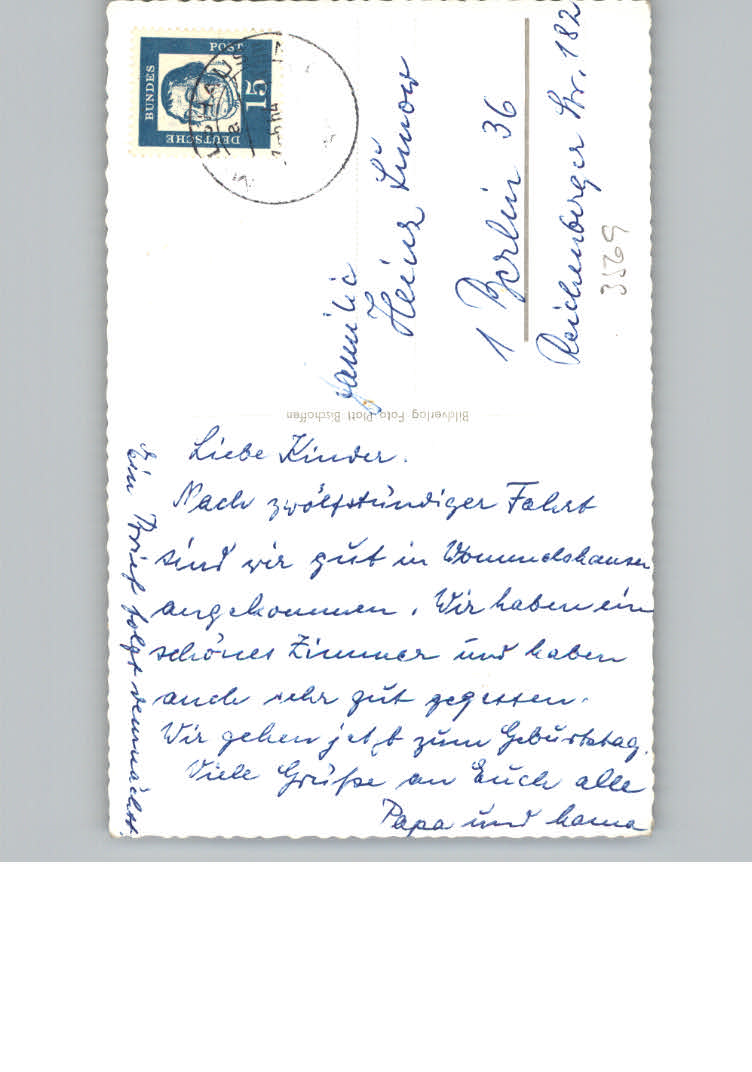 Liebe Kinder.
Nach zwölfstündiger Fahrt
sind wir gut in Wommelshausen
angekommen. Wir haben ein
schönes Zimmer und haben
auch sehr gut gegessen.
Wir gehen jetzt zum Geburtstag.
Viele Grüße an Euch alle
Papa und Mama
Ein Brief folgt demnächst.
Familie
Heinz Lünow
1 Berlin 36
Reichenberger Str. 182
3569
Bildverlag Foto Plott Bischoffen
DEUTSCHE
BUNDES
POST
15